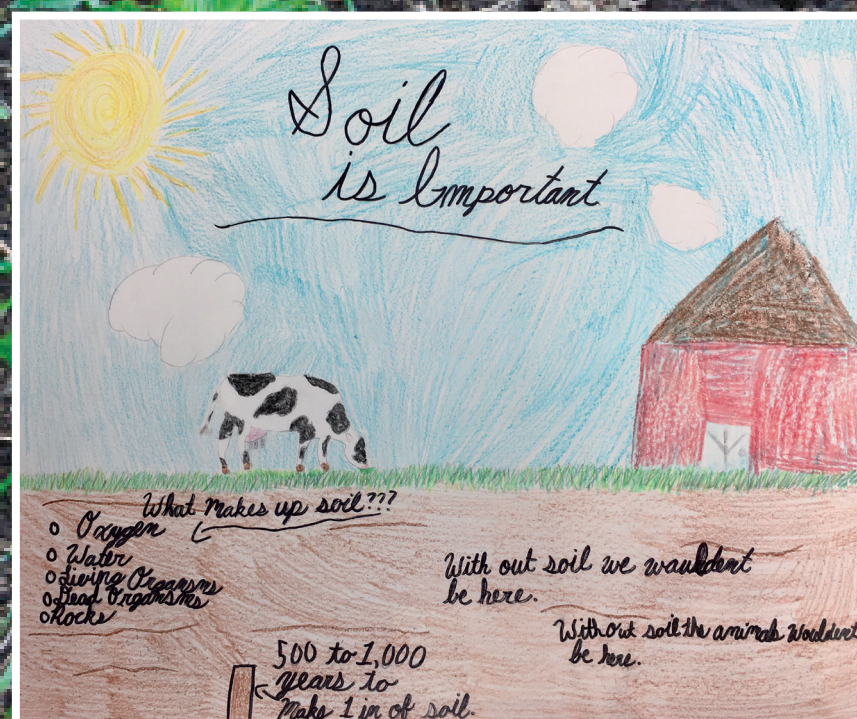 Soil
is Important
What makes up soil???
o Oxygen
o Water
o Living Organsms
o Dead Organsms
o Rocks
With out soil we wauldent
be here.
Without soil the animals wouldent
be here.
500 to 1,000
years to
Make 1 in of soil.